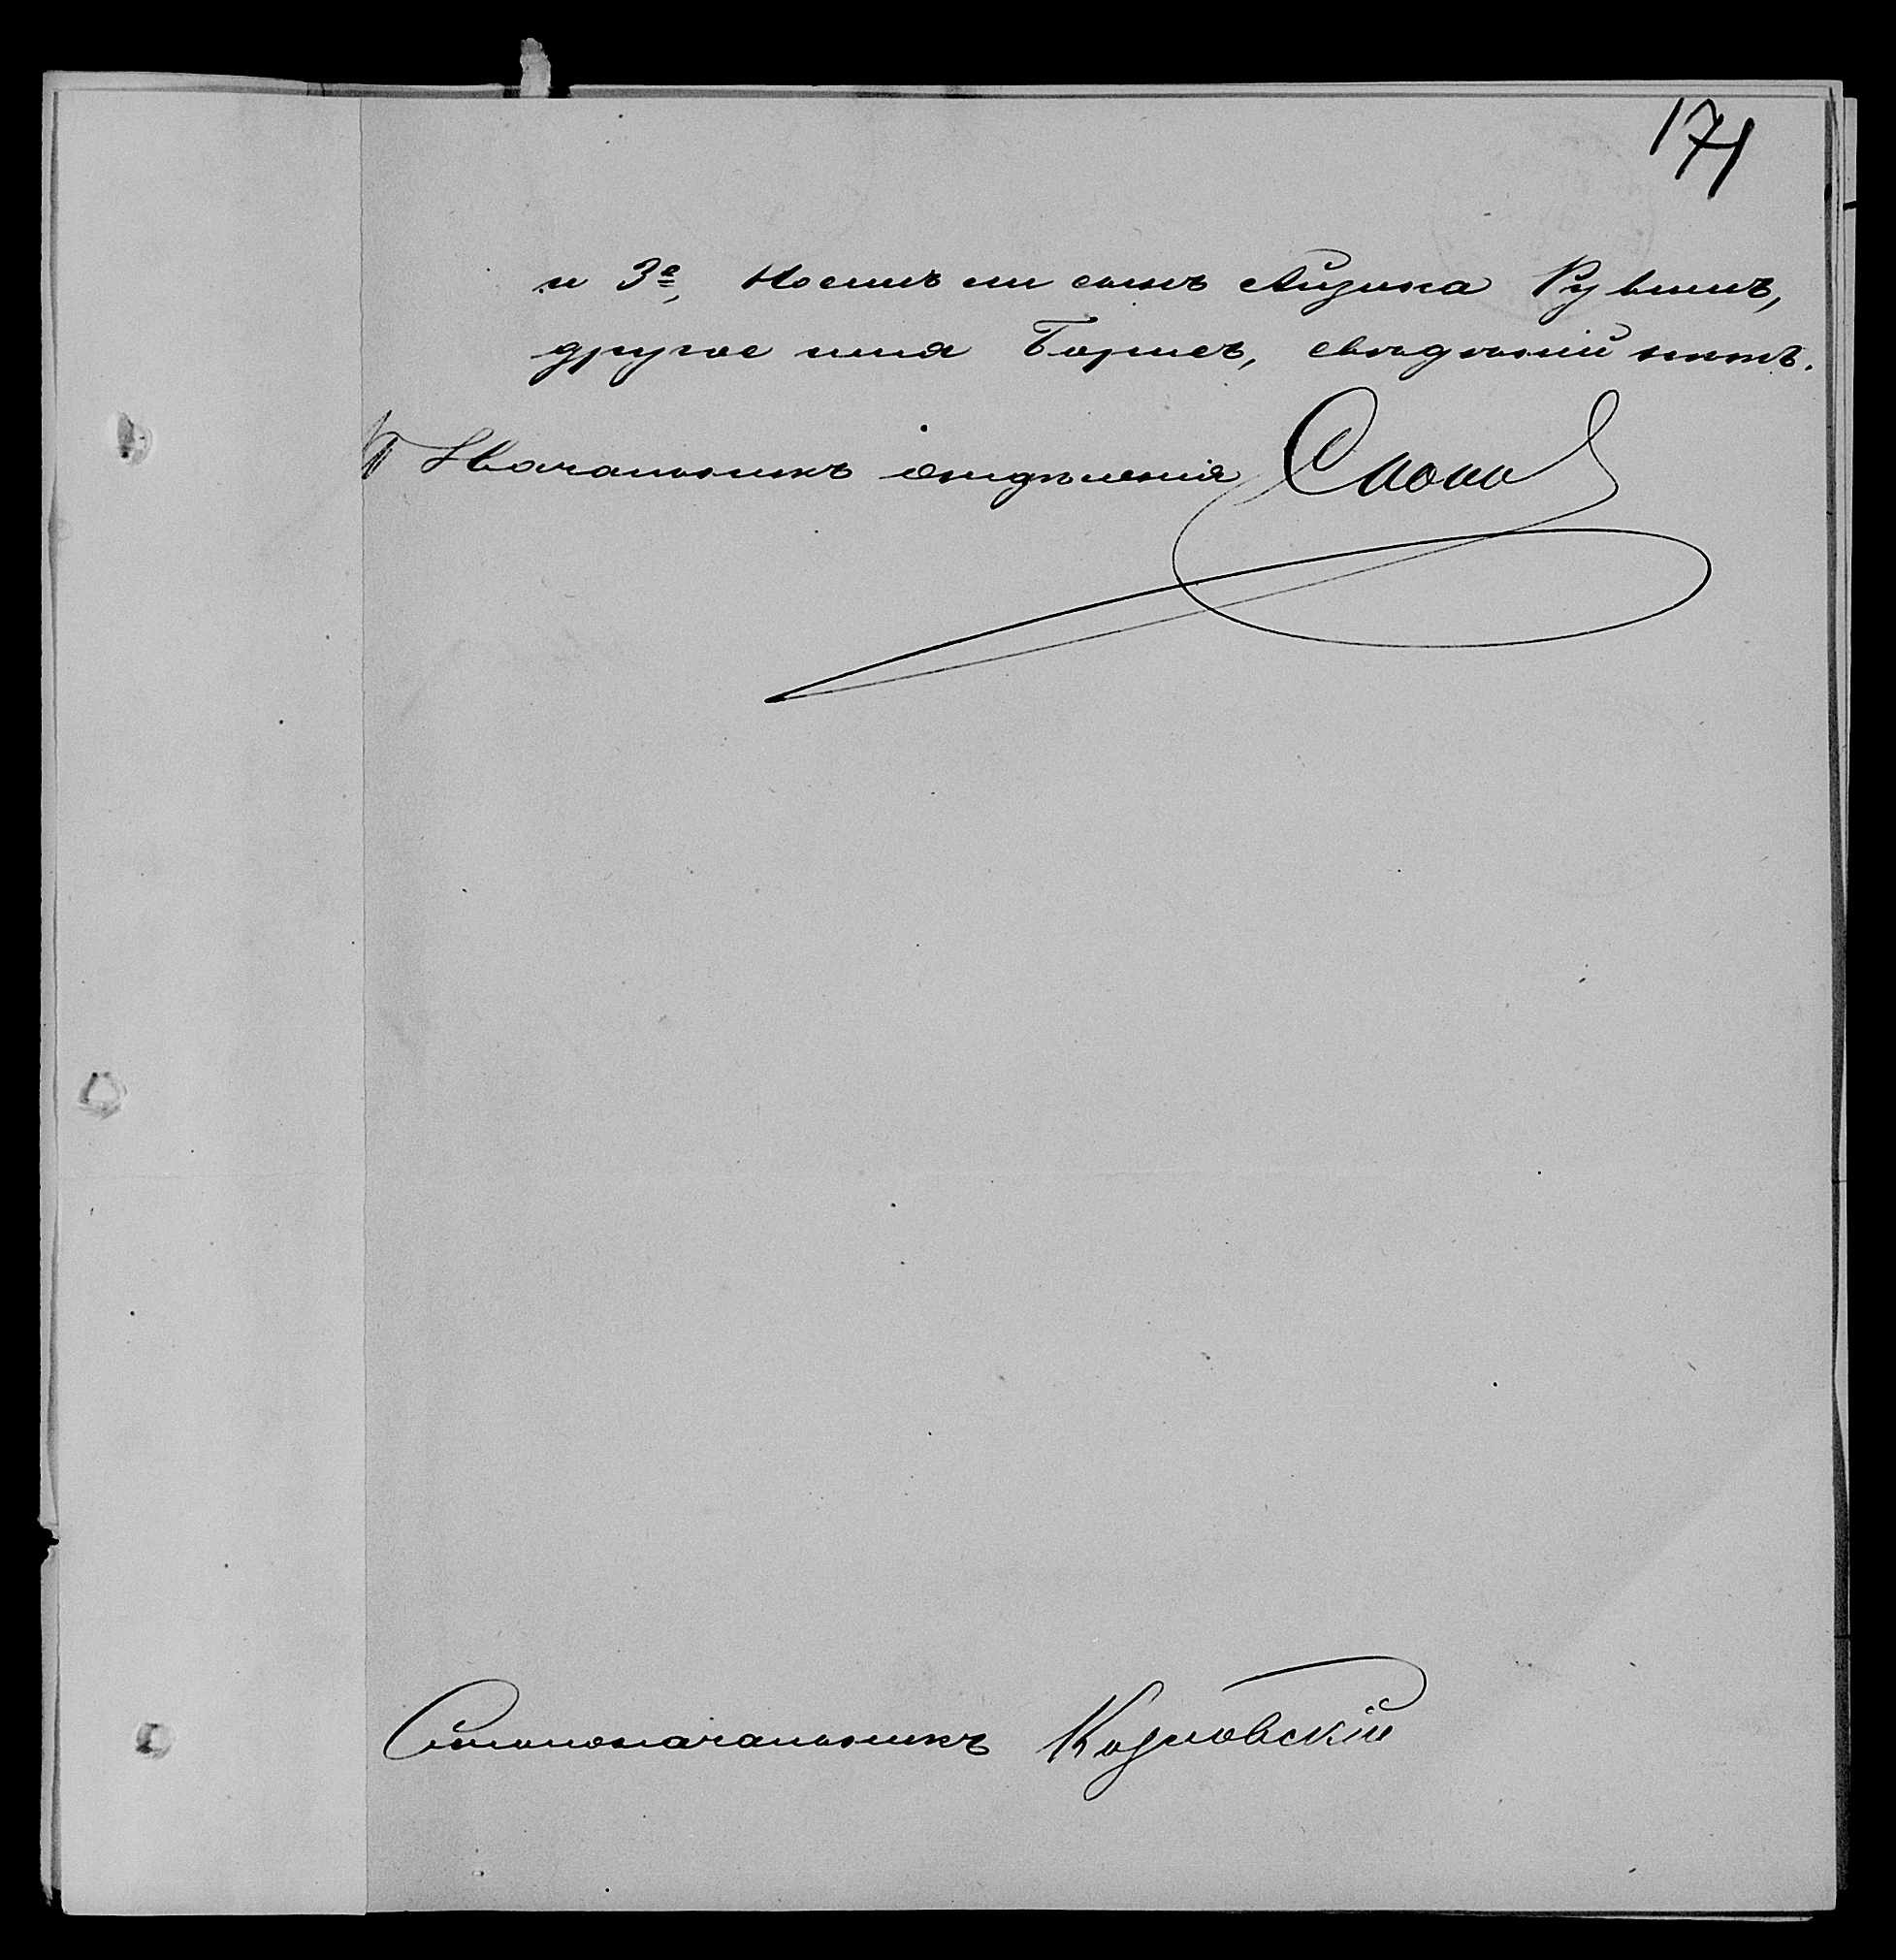 171
и 3е, Носитъ ли сынъ Айзика Рувимъ,
другое имя Борисъ, свѣдѣній нѣтъ.
Начальникъ отдѣленія
Столоначальникъ Козловскій